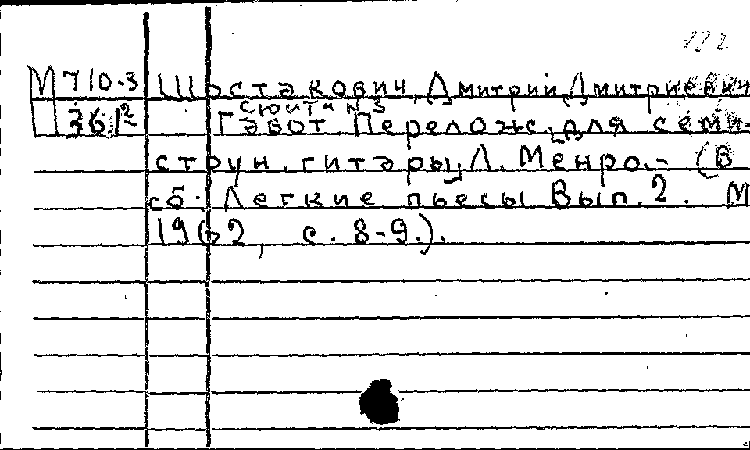 М 710.3 Шостакович, Дмитрий Дмитриевич
Сюита N 3
Ш 361² Гавот. Перелож. для семи-
струн. гитары Л. Менро.- (В
сб. Легкие пьесы Вып. 2. М
1962, с. 8-9.).